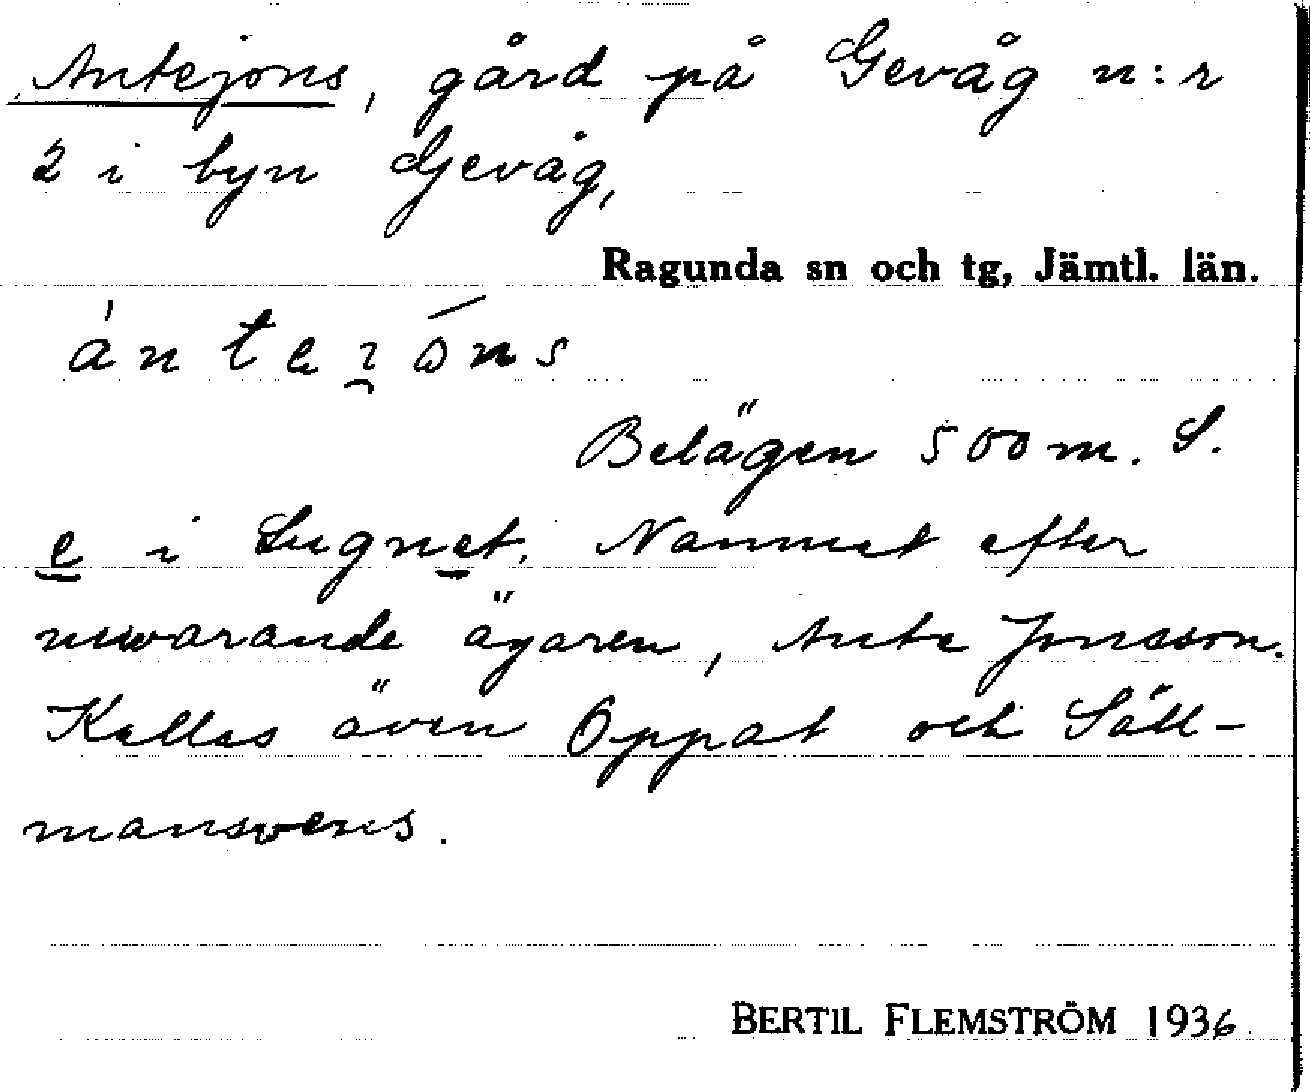 Antejons, gård på Gevåg n:r
2 i byn Gevåg,
Ragunda sn och tg, Jämtl. län.
Belägen 500 m. S.
e i Lugnet. Namnet efter
nuvarande ägaren, Ante Jonsson.
Kallas även Oppat och Säll-
mansvens.
BERTIL FLEMSTRÖM 1936